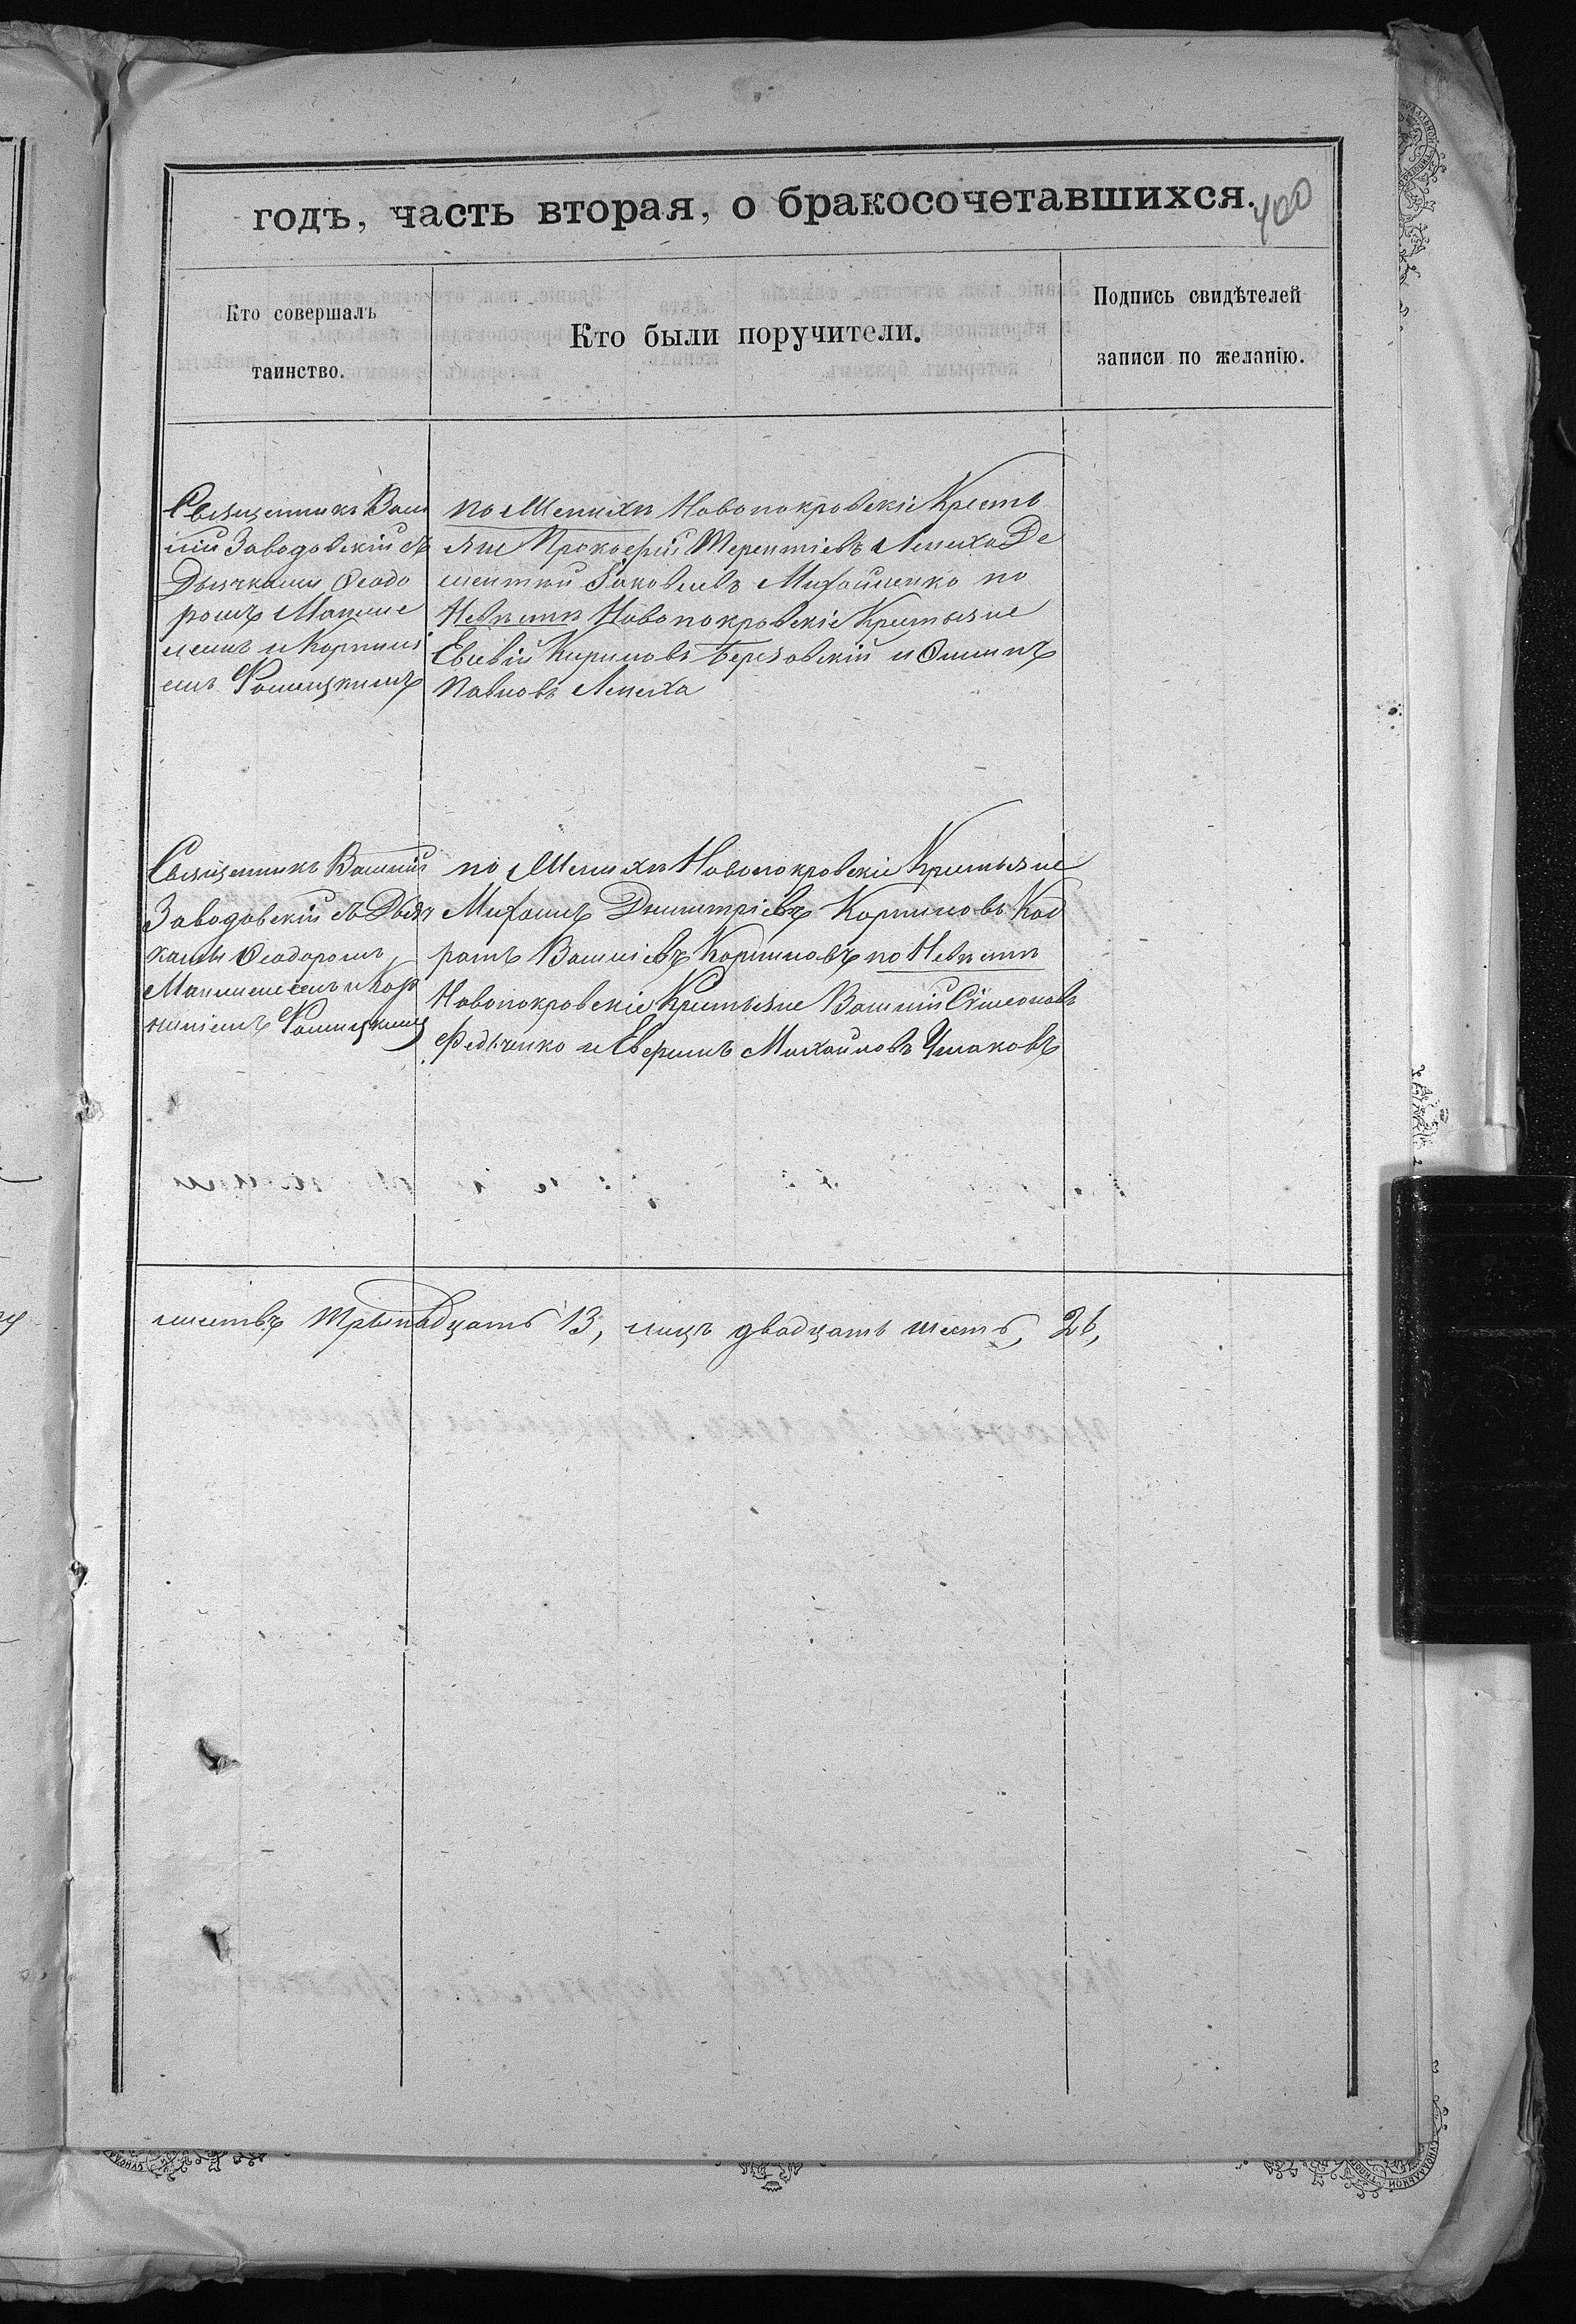 годъ, часть вторая, о бракосочетавшихся.
400
Кто совершалъ
таинство.
Кто были поручители.
Подпись свидѣтелей
записи по желанію.
Священникъ Васи
лій Заводовскій съ
Дьячками Ѳеодо
ромъ
и Корнилі
емъ
по Женихѣ Новопокровскіе Кресть
яне Прокофій Терентіевъ Лепеха Де
ментій Іаковлевъ Михайленко по
Невѣстѣ Новопокровскіе Крестьяне
Евсевій Кириловъ Березовскій и Осипъ
Павловъ Лепеха
Священникъ Василій
Заводовскій съ Дьяч
ками Ѳеодоромъ
и Кор
ниліемъ
по Женихѣ Новопокровскіе Крестьяне
Михаилъ Димитріевъ Корниловъ Код
ратъ Василіевъ Корниловъ по Невѣстѣ
Новопокровскіе Крестьяне Василій Сімеоновъ
Федченко и Михайловъ
тринадцать 13, лицъ двадцать шесть, 26,